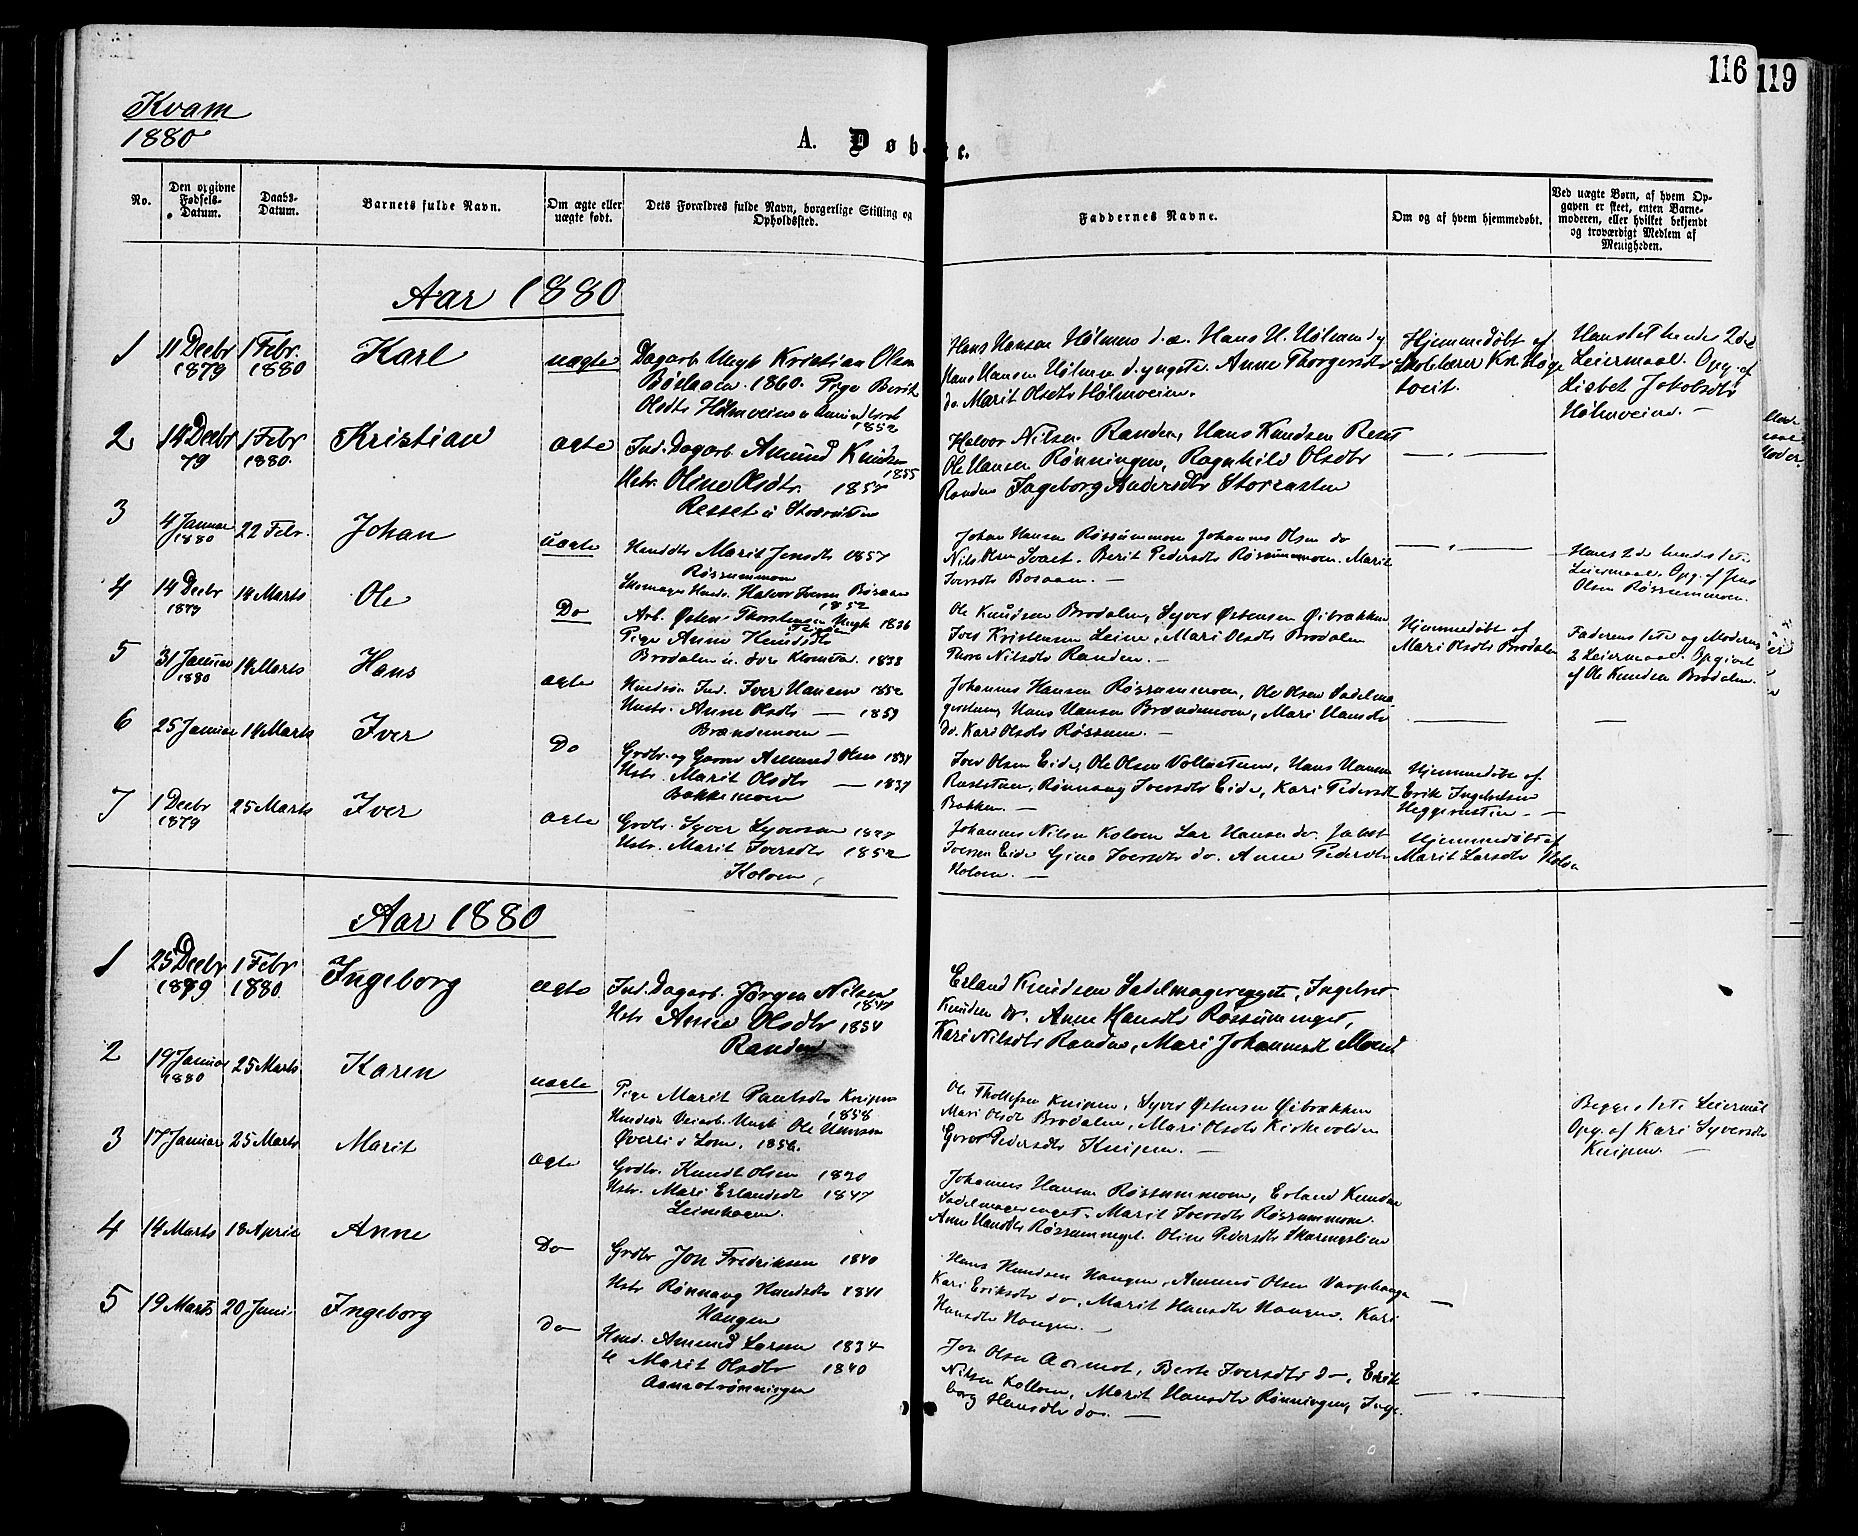 116
119
Kvam
1880
A. Døbte.
No.
Den opgivne Fødsels-Datum.
Daabs-Datum.
Barnets fulde Navn.
Om ægte eller uægte født.
Dets Forældres fulde Navn, borgerlige Stilling og Opholdssted.
Faddernes Navne.
Om og af hvem hjemmedøbt.
Ved uægte Børn, af hvem Opgaven er skeet, enten Barnemoderen, eller hvilket bekjendt og troværdigt Medlem af Menigheden.
Aar 1880
1
11 Decbr 1879
1 Febr. 1880
Karl
uægte
Dagarb. Ungk Kristian Olsen
1860. Pige Berit
Olsdtr Hølmveien
1852
Hans Hansen Hølmen d.æ. Hans H. Hølmen
Hans Hansen Hølmen d. yngste. Anne Thorgersdtr
do Marit Olsdtr Hølmveien.
Hjemmedøbt af
Skolelærer Kr.
tveit.
Hans 1ste hendes 2det
Leiermaal. Opg. af
Lisbet Jakobsdtr
Hølmveien. —
2
14 Decbr 79
1 Febr 1880.
Kristian
ægte
Ind. Dagarb Amund Knudsen
1855
Hstr. Oline Olsdtr. 1857
Resset
Halvor Nilsen Randen, Hans Knudsen Reset
Ole Hansen Rønningen, Ragnhild Olsdtr
Randen Ingeborg Andersdtr
3
4 Januar 1880
22 Febr.
Johan
uægte
Marit Jensdtr 1857
Røssummoen
Halvor Iversen
1852
Johan Hansen Røssummoen Johannes Olsen do
Nils Olsen Tveit. Berit Pedersdtr Røssummoen. Marit
Iversdtr —
Hans 2de hendes 1ste
Leiermaal. Opg. af Jens
Olsen Røssummoen.
4
14 Decbr 1879
14 Marts
Ole
Do
Arb. Østen Thorstensen Ungk 1836
Pige Anne Knudsdtr
Brodalen 1838
Ole Knudsen Brodalen, Syver Østensen Øibrækken
Iver Kristensen Leine, Mari Olsdtr Brodalen
Thore Nilsdtr Randen. —
Hjemmedøbt af
Mari Olsdtr Brodalen
Faderens 1ste og Moderens
2 Leiermaal. Opgivet
af Ole Knudsen Brodalen.
5
31 Januar 1880
14 Marts
Hans
ægte
Ind. Iver Hansen 1852
Hustr. Anne Olsdtr — 1859
Brændemoen —
Johannes Hansen Røssummoen, Ole Olsen
Hans Hansen Brændemoen, Mari Hansdtr
do. Kari Olsdtr Røssum. —
6
25 Januar
14 Marts
Iver
Do
Grdbr. og Amund Olsen 1834
Hstr. Marit Olsdtr — 1837
Bakkemoen
Iver Olsen Eide, Ole Olsen Hans Hansen
Rønnaug Iversdtr Eide, Kari Pedersdtr
Bakken. —
Hjemmedøbt af
Erik Ingebretsen
7
1 Decbr 1879
25 Marts
Iver
ægte
Grdbr. Syver Syversen
Hstr. Marit Iversdtr 1852
Kolven,
Johannes Nilsen Kolven Lar Hansen do.
Iversen Eide Gina Iversdtr do. Anne Pedersdtr
Kolven. —
Hjemmedøbt af
Marit Larsdtr Kolven
Aar 1880
1
25 Decbr 1879
1 Febr 1880
Ingeborg
ægte
Ind. Dagarb. Jørgen Nilsen
Hstr Anne Olsdtr 1854
Randen
Erland Knudsen Sadelmagereggete, Ingebret
Knudsen do. Anne Hansdtr Røssumeget,
Kari Nilsdtr Randen, Mari Johannesdt Moend
2
19 Januar 1880
25 Marts
Karen
uægte
Pige Marit Paulsdtr Knipen
1858
Veiarb. Ungk Ole Hansen
Øverli i Lom, 1856.
Ole Thollefsen Knipen, Syver Østensen Øibrækken
Mari Olsdt Brodalen, Mari Olsdtr Kirkevolden
Pedersdtr Knipen. —
Begges 1ste Leiermål
Opg. af Kari Syversdtr
Knipen. —
3
17 Januar
25 Marts
Marit
ægte
Grdbr. Knudt Olsen
Hstr. Mari Erlandsdt 1847
Leinehagen.
Johannes Hansen Røssummoen, Erland Knudsen
Marit Iversdtr Røssummoen.
Anne Hansdtr Røssumeget. Oline Pedersdtr
4
14 Marts
18 April
Anne
Do
Grdbr Jon Fredriksen 1840
Hstr Rønnaug Knudsdtr 1841
Haugen
Hans Knudsen Haugen, Amund Olsen
Kari Eriksdtr do, Marit Hansdtr Haugen, Kari
Hansdtr Haugen. —
5
19 Marts
20 Juni
Ingeborg
Do
Amund Larsen 1834
Marit Olsdtr 1840
Jon Olsen Aamot, Berte Iversdtr do, Erik
Nilsen Kolloen, Marit Hansdtr Rønningen, Inge-
borg Hansdtr do. —